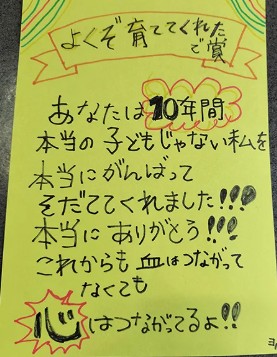 よくぞ育ててくれた
で賞
あなたは10年間、
本当の子どもじゃない私を
本当にがんばって
そだててくれました!!!
本当にありがとう!!!
これからも血はつながって
なくても
心はつながってるよ!!